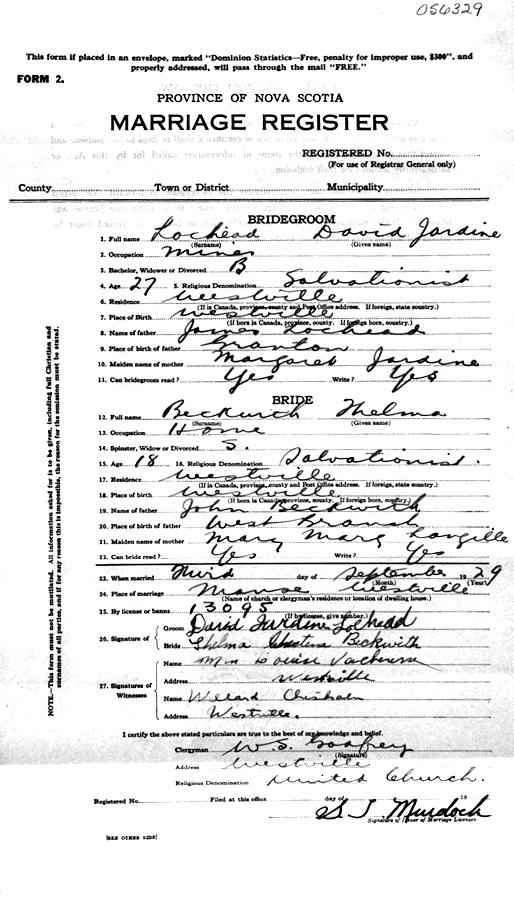 056329
This form if placed in an envelope, marked "Dominion Statistics—Free, penalty for improper use, $300", and
properly addressed, will pass through the mail "FREE."
FORM 2.
PROVINCE OF NOVA SCOTIA
MARRIAGE REGISTER
REGISTERED No.
(For use of Registrar General only)
County Town or District Municipality
BRIDEGROOM
1. Full name Lochead David Jardine
(Surname) (Given name)
2. Occupation Miner
3. Bachelor, Widower or Divorced B
4. Age 27 5. Religious Denomination Salvationist
6. Residence Westville
(If in Canada, province, county and Post Office address. If foreign, state country.)
7. Place of Birth Westville
(If born in Canada, province, county. If foreign born, country.)
8. Name of father James Lochead
9. Place of birth of father Granton
10. Maiden name of mother Margaret Jardine
11. Can bridegroom read? Yes Write? Yes
BRIDE
12. Full name Beckwith Thelma
(Surname) (Given name)
13. Occupation Home
14. Spinster, Widow or Divorced S.
15. Age 18 16. Religious Denomination Salvationist.
17. Residence Westville
(If in Canada, province, county and Post Office address. If foreign, state country.)
18. Place of birth Westville
(If born in Canada, province, county. If foreign born, country.)
19. Name of father John Beckwith
20. Place of birth of father West Branch
21. Maiden name of mother Mary Langille
22. Can bride read? Yes Write? Yes
23. When married Third day of September 1929
(Month) (Year)
24. Place of marriage Manse Westville
(Name of church or clergyman's residence or location of dwelling house.)
25. By license or banns 13095
(If by license, give number.)
26. Signature of Groom David Jardine Lochead
Bride Thelma Beckwith
Name Mrs Louise
Address Westville
27. Signatures of Witnesses Name Willard Chisholm
Address Westville.
I certify the above stated particulars are true to the best of my knowledge and belief.
Clergyman W. S. Godfrey
(Signature)
Address Westville
Religious Denomination United Church.
Registered No. Filed at this office day of 19
S J Murdoch
Signature of Issuer of Marriage Licenses.
[SEE OTHER SIDE]
NOTE.—This form must not be mutilated. All information asked for is to be given, including full Christian and
surnames of all parties, and if for any reason this is impossible, the reason for the omission must be stated.